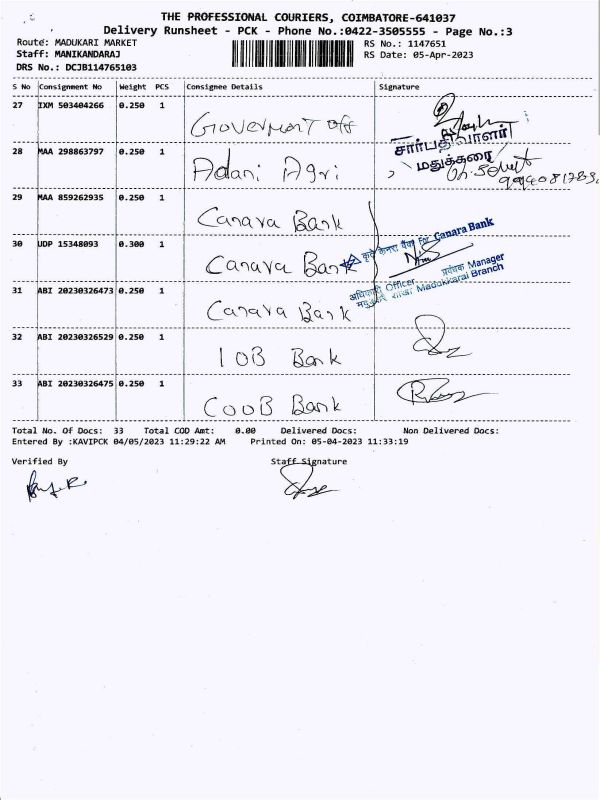 THE PROFESSIONAL COURIERS, COIMBATORE-641037
Delivery Runsheet - PCK - Phone No.:0422-3505555 - Page No.:3
Route: MADUKARI MARKET
RS No.: 1147651
Staff: MANIKANDARAJ
RS Date: 05-Apr-2023
DRS No.: DCJB114765103
S No Consignment No Weight PCS Consignee Details Signature
27 IXM 503404266 0.250 1
Goverment off
சார்பதிவாளர்
மதுக்கரை
28 MAA 298863797 0.250 1
Adani Agri
29 MAA 859262935 0.250 1
Canara Bank
कृते केनरा बैंक For Canara Bank
30 UDP 15348093 0.300 1
Canara Bank
अधिकारी Officer प्रबंधक Manager
शाखा Madukkarai Branch
31 ABI 20230326473 0.250 1
Canara Bank
32 ABI 20230326529 0.250 1
IOB Bank
33 ABI 20230326475 0.250 1
COOB Bank
Total No. Of Docs: 33 Total COD Amt: 0.00 Delivered Docs: Non Delivered Docs:
Entered By :KAVIPCK 04/05/2023 11:29:22 AM Printed On: 05-04-2023 11:33:19
Verified By Staff Signature